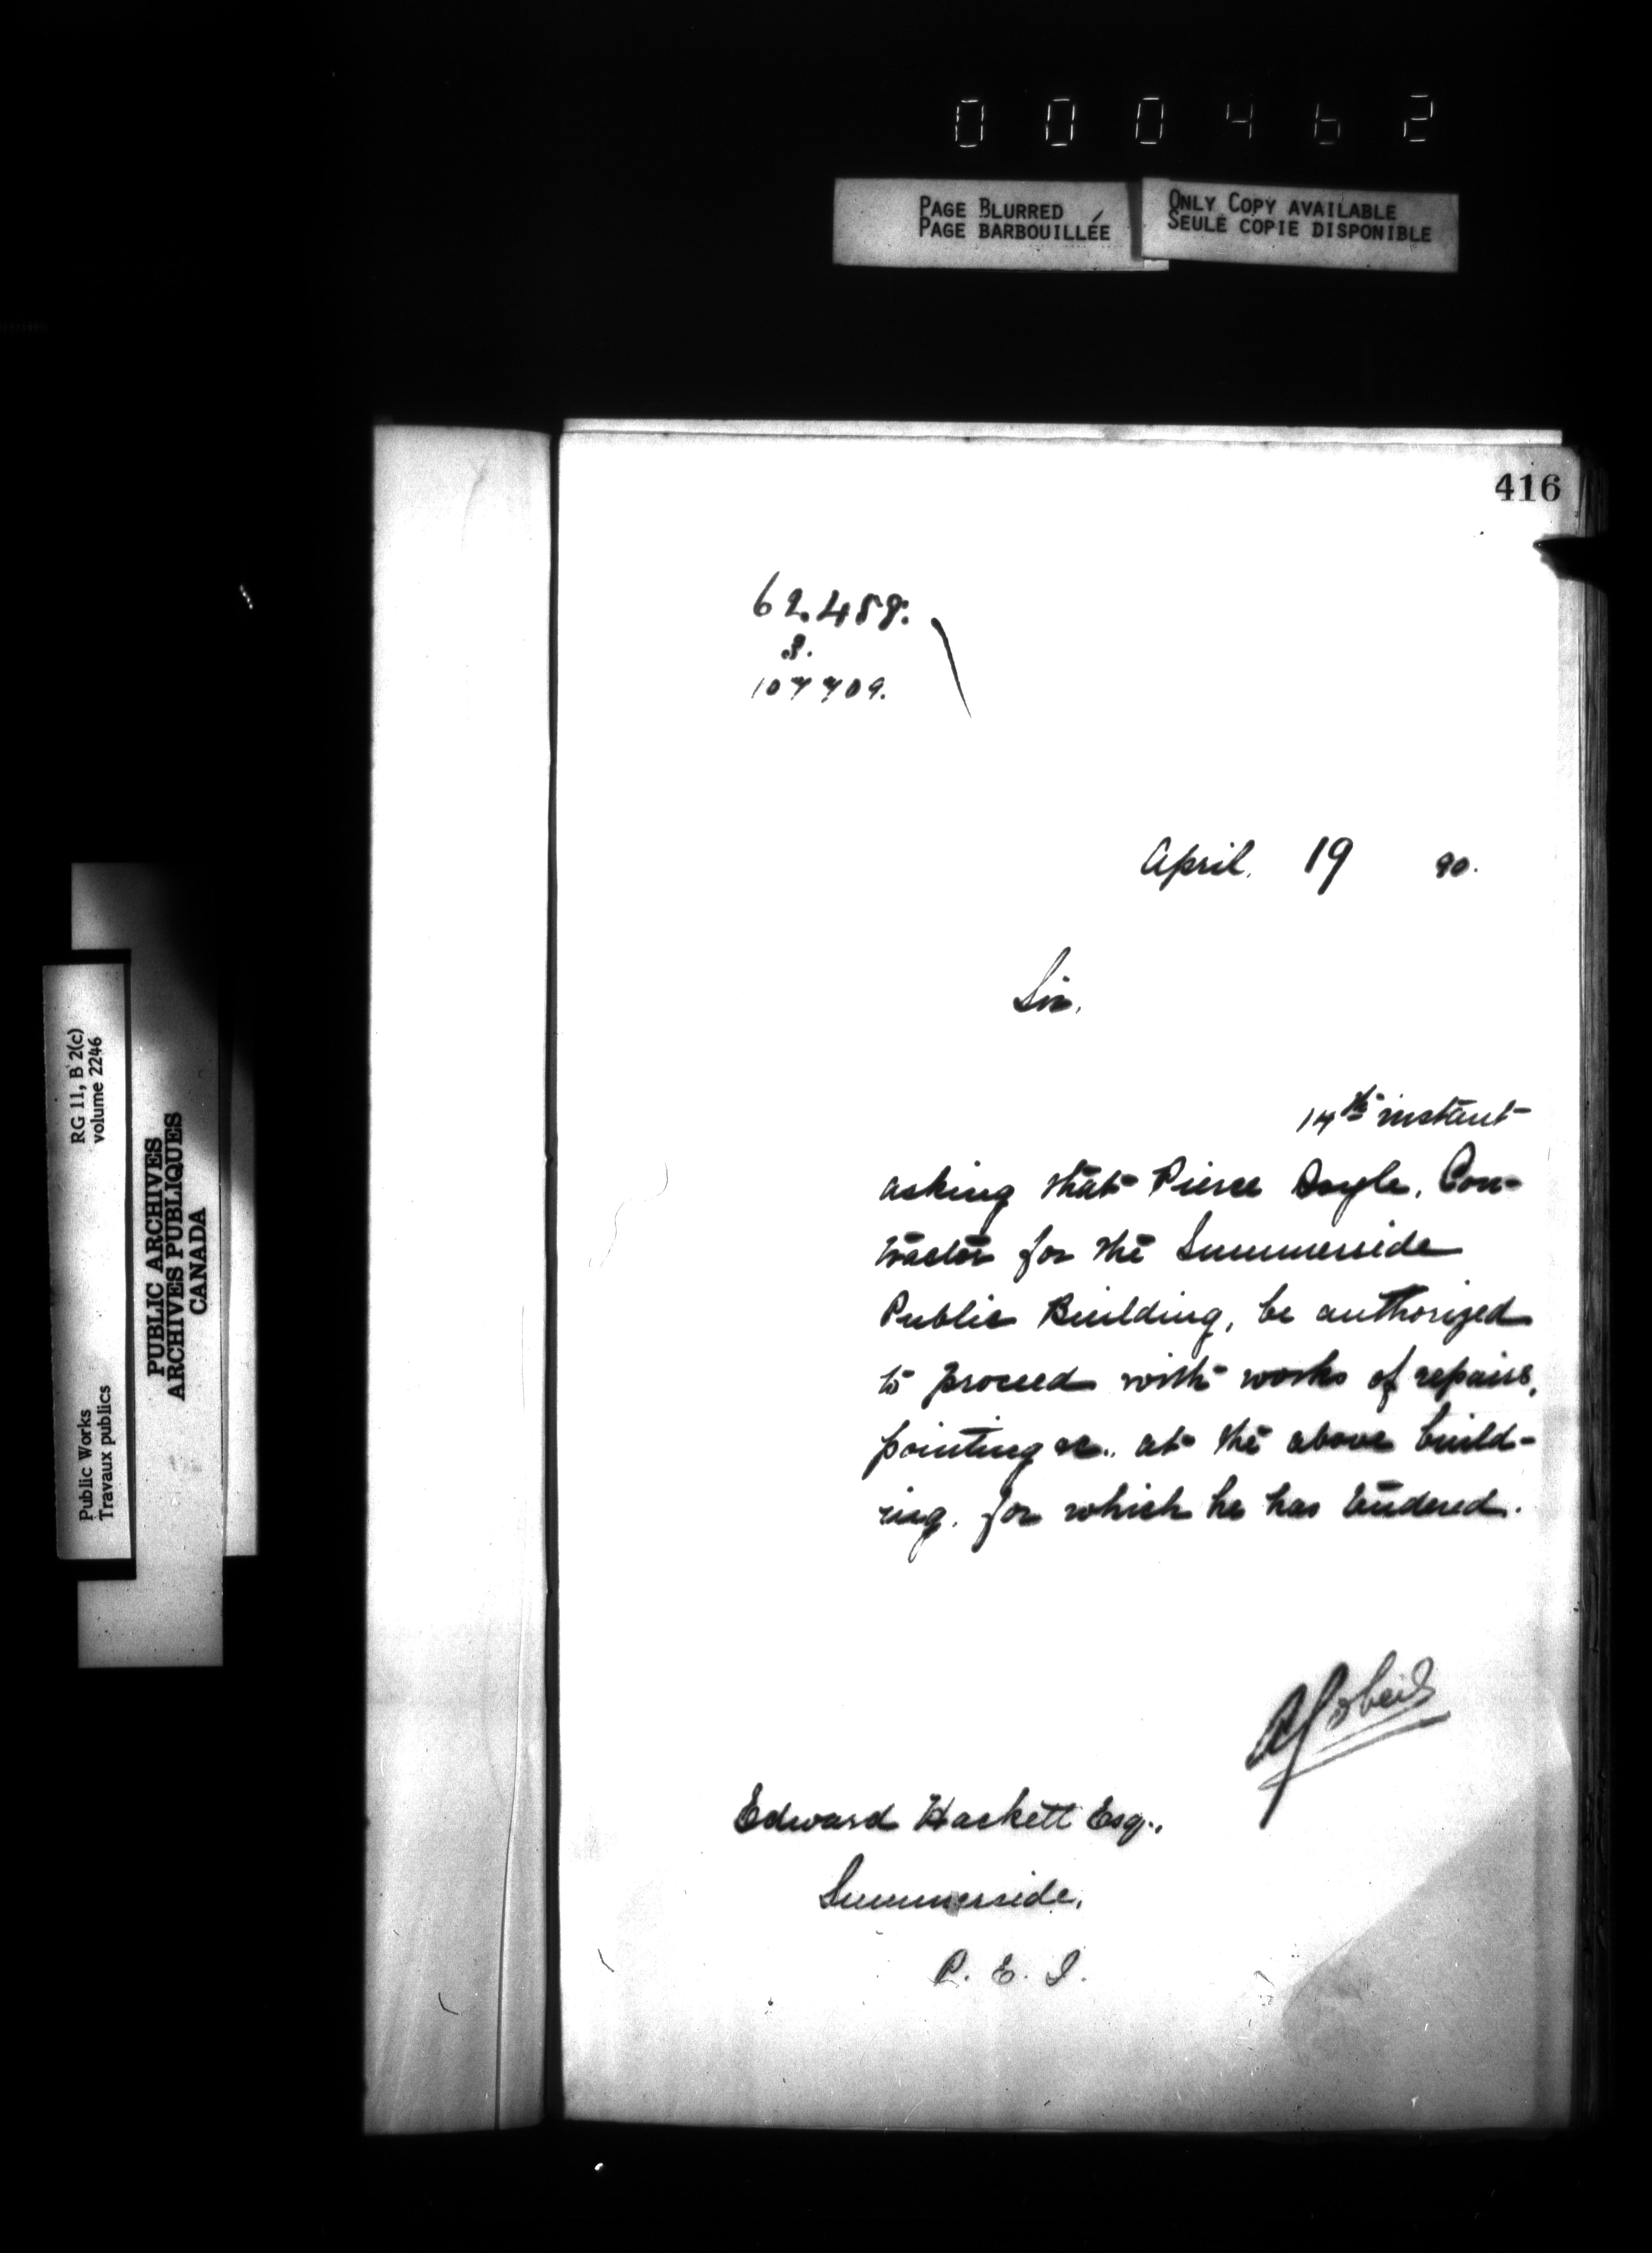 000462
PAGE BLURRED
PAGE BARBOUILLÉE
ONLY COPY AVAILABLE
SEULE COPIE DISPONIBLE
416
62.458.
8.
107709.
April. 19 90.
Sir,
14th instant
asking that Pierce Doyle, Con-
tractor for the Summerside
Public Building, be authorized
to proceed with works of repairs,
pointing &c., at the above build-
ing, for which he has tendered.
Edward Hackett Esq.,
Summerside,
P. E. I.
RG 11, B 2(c)
volume 2246
Public Works
Travaux publics
PUBLIC ARCHIVES
ARCHIVES PUBLIQUES
CANADA